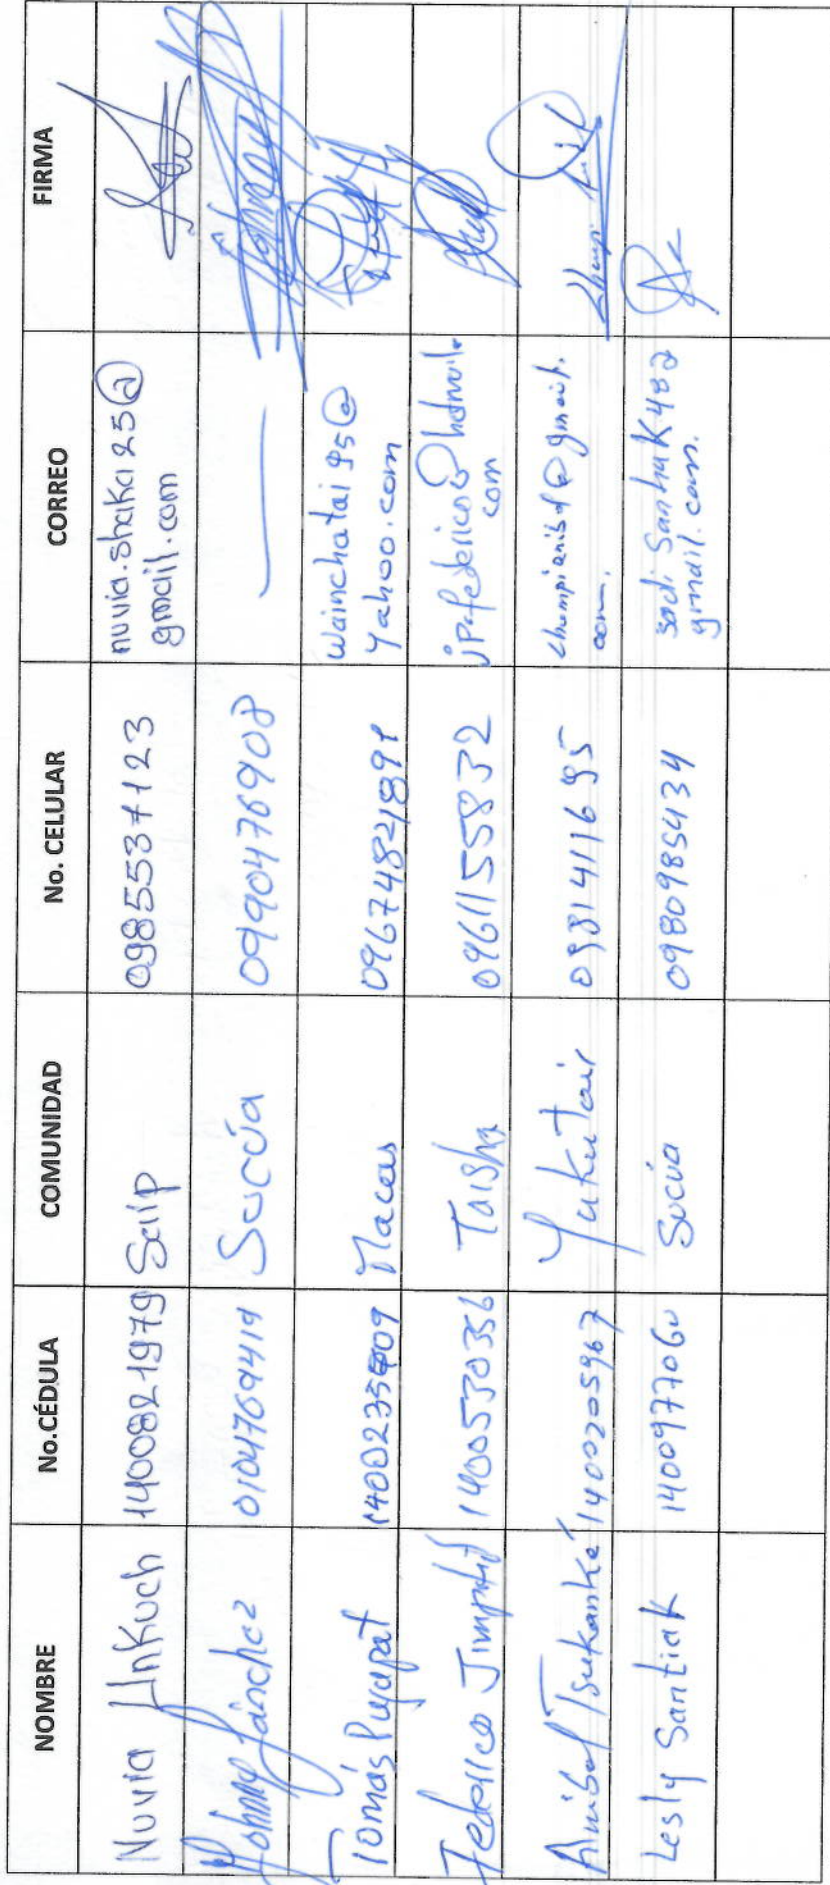 NOMBRE No.CÉDULA COMUNIDAD No. CELULAR CORREO FIRMA
Nuvia Unkuch 1400821979 Saip 0985537123 nuvia.shakai25@
gmail.com
Johnny Sánchez 0104769414 Sucúa 0990476908 —
Johnny
Tomás Pujupat Macas 0967482189 wainchatai95@
yahoo.com
Federico Jimpikit 1400530356 Taisha 0961155832 jpfederico@hotmail.
com
Anibal Tsukanká 1400205967 Yukutais 0981411695 chumpianibal@gmail.
com.
Lesly Santiak 1400977060 Sucúa 0980985434 sadi Santiak482
gmail.com.